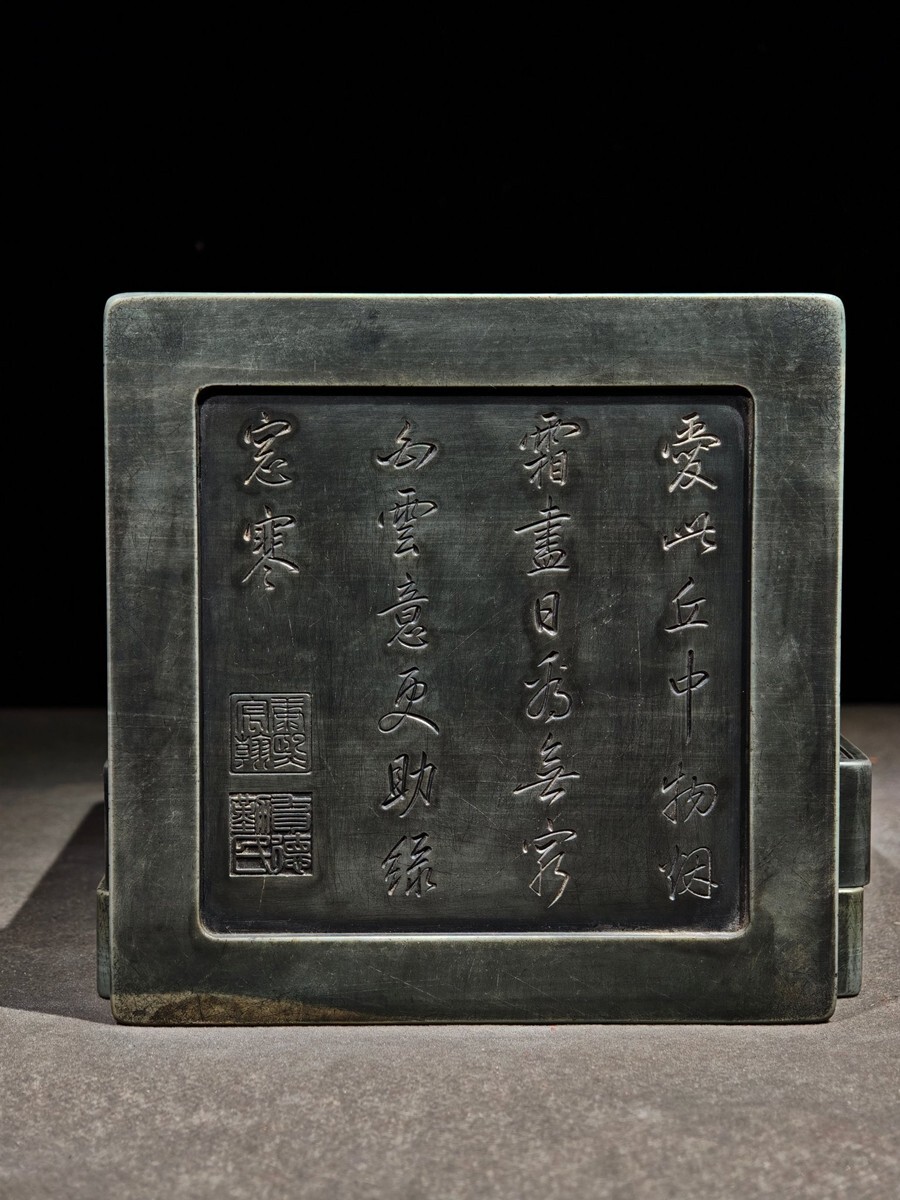 愛此丘中物烟
霜盡日看無窮
白雲意更助綠
窓寒
康熙宸翰
育德勤民